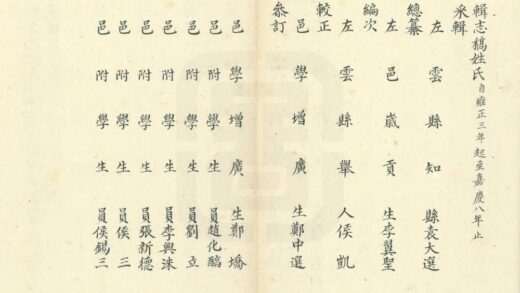 輯志稿姓氏 自雍正三年起至嘉慶八年止
采輯
左雲縣知縣袁大選
總纂
左雲縣舉人侯凱
左邑歲貢生李翼聖
編次
邑學增廣生鄭中選
較正
邑學增廣生鄭墧
叅訂
邑附學生員趙化醕
邑附學生員劉立
邑附學生員李興洙
邑附學生員張新德
邑附學生員侯三
邑附學生員侯錫三